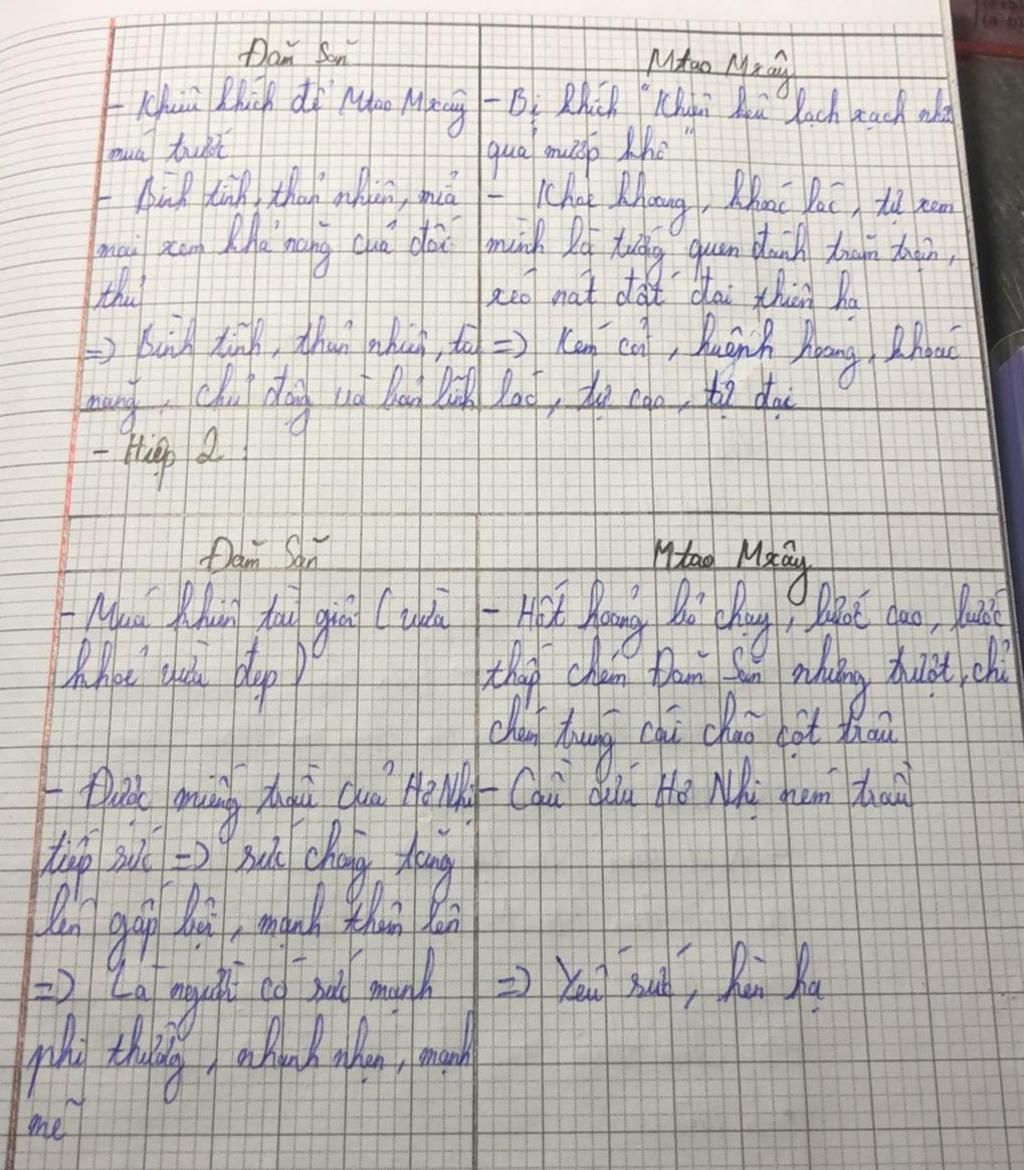 Đăm Săn
Mtao Mxây
- Khiêu khích để Mtao Mxây
múa trước
- Bình tĩnh, thản nhiên, mỉa
mai xem khả năng của đối
thủ
=> Bình tĩnh, thản nhiên, tài
năng, chủ động và bản lĩnh
- Bị khích "Khiên kêu lạch xạch như
quả mướp khô"
- Khoe khoang, khoác lác, tự xem
mình là tướng quen đánh trăm trận,
xéo nát đất đai thiên hạ
=> Kém cỏi, huênh hoang, khoác
lác, tự cao, tự đại
- Hiệp 2:
Đăm Săn
Mtao Mxây
- Múa khiên tài giỏi (vừa
khoẻ vừa đẹp)
- Được miếng trầu của Hơ Nhị
tiếp sức => sức chàng tăng
lên gấp bội, mạnh thêm lên
=> Là người có sức mạnh
phi thường, nhanh nhẹn, mạnh
mẽ
- Hốt hoảng bỏ chạy, bước cao, bước
thấp chém Đăm Săn nhưng trượt, chỉ
chém trúng cái chão cột trâu
- Cầu cứu Hơ Nhị ném trầu
=> Yếu sức, hèn hạ